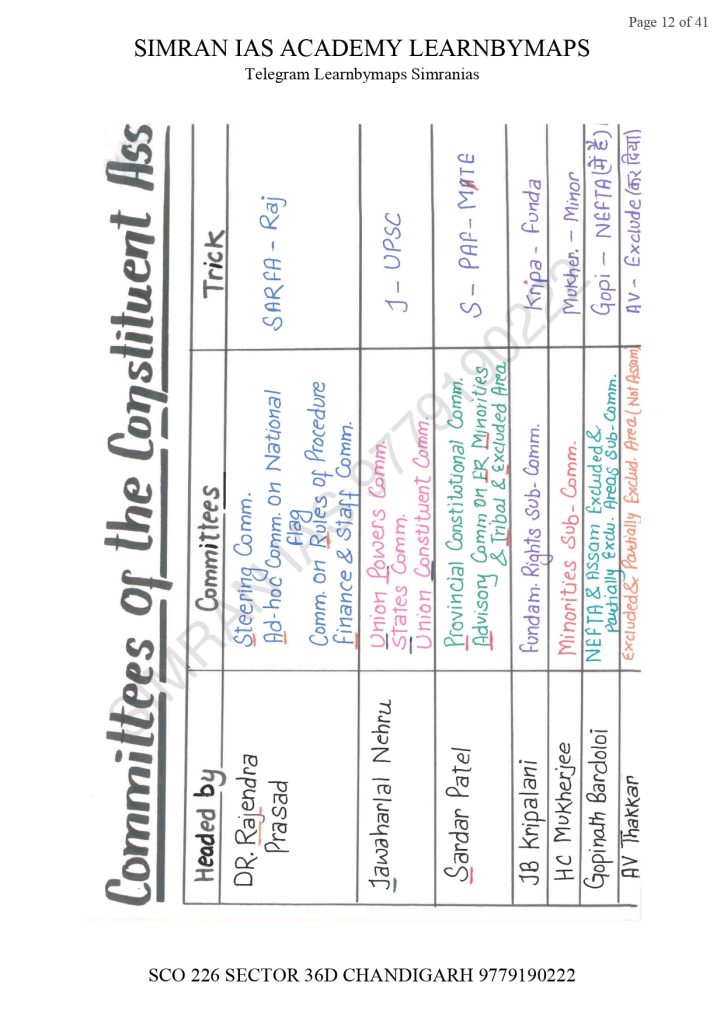 Page 12 of 41
SIMRAN IAS ACADEMY LEARNBYMAPS
Telegram Learnbymaps Simranias
Committees of the Constituent Ass
Headed by
Committees
Trick
DR. Rajendra
Prasad
Steering Comm.
Ad-hoc Comm. on National
flag
Comm. on Rules of Procedure
Finance & Staff Comm.
SARFA - Raj
Jawaharlal Nehru
Union Powers Comm.
States Comm.
Union Constituent Comm.
J - UPSC
Sardar Patel
Provincial Constitutional Comm.
Advisory Comm on FR Minorities
& Tribal & Excluded Area
S - PAF - MATE
JB Kripalani
Fundam. Rights Sub-Comm.
Kripa - Funda
HC Mukherjee
Minorities Sub-Comm.
Mukher. - Minor
Gopinath Bardoloi
NEFTA & Assam Excluded &
Partially Exclu. Areas Sub-Comm.
Gopi - NEFTA (में है)
AV Thakkar
Excluded & Partially Exclud. Area (Not Assam
AV - Exclude (कर दिया)
SIMRAN IAS 9779190222
SCO 226 SECTOR 36D CHANDIGARH 9779190222